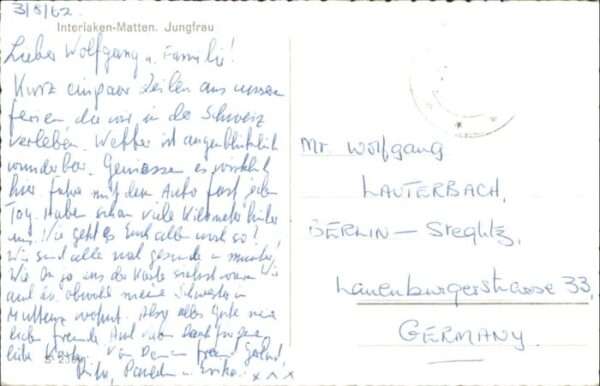 3/5/62
Interlaken-Matten. Jungfrau
Lieber Wolfgang u. Familie!
Kurz ein paar Zeilen aus unseren
ferien die wir in de Schweiz
verleben. Wetter ist augenblicklich
wunderbar. Geniessen es wirklich
hier fahre mit dem Auto fast jeden
Tag. Haben schon viele Kilometer hinter
uns. Wie geht es Euch allen noch so?
Wir sind alle noch gesund u munter,
Wie Du ja aus der Karte siehst waren wir
auch in
meine Schwester in
Muttenz wohnt. Also alles Gute
liebe
Von Deinem
Rita, u. x x x
Mr. Wolfgang
LAUTERBACH,
BERLIN - Steglitz,
Lauenburgerstrasse 33,
GERMANY.